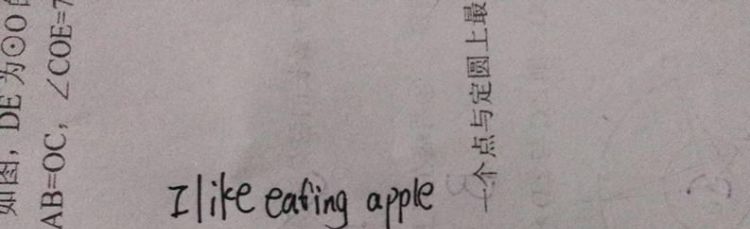 如图，DE 为⊙O
AB=OC，∠COE=7
一个点与定圆上最
I like eating apple